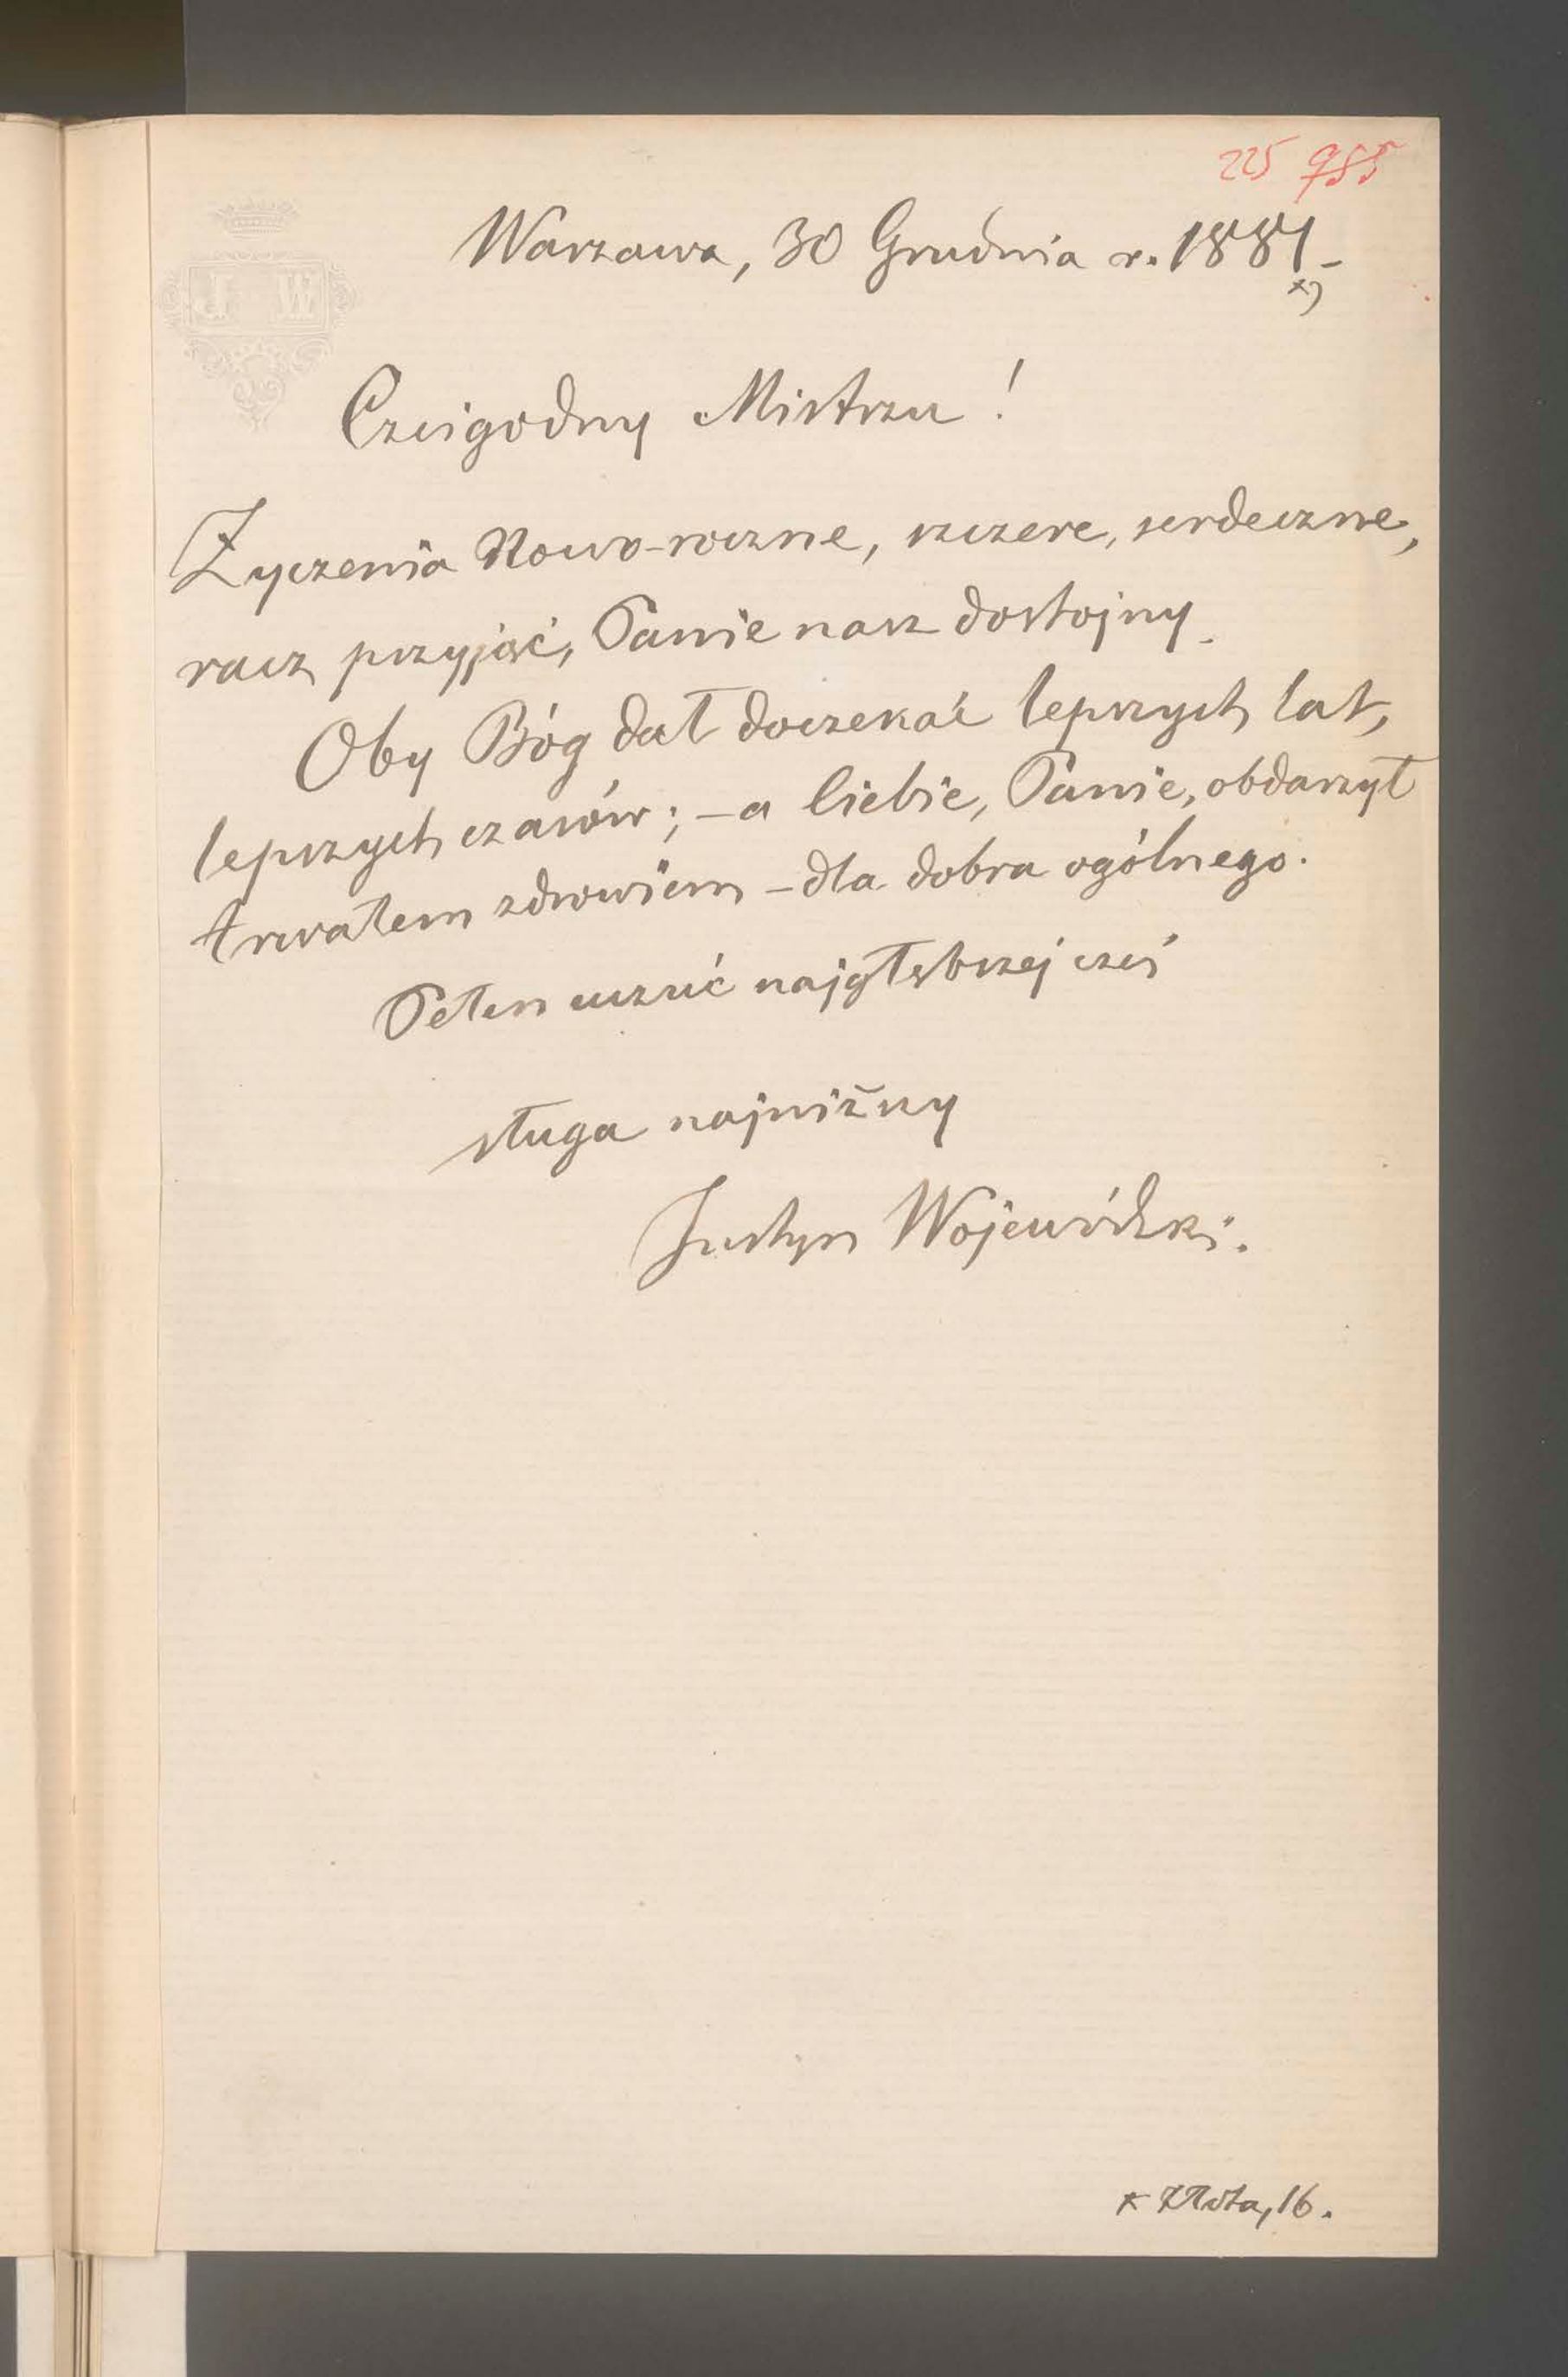 225 985
J W
Warszawa, 30 Grudnia r. 1881.-
x)
Czcigodny Mistrzu!
Życzenia Nowo-roczne, szczere, serdeczne,
racz przyjąć, Panie nasz dostojny.
Oby Bóg dał doczekać lepszych lat,
lepszych czasów; - a Ciebie, Panie, obdarzył
trwałem zdrowiem - dla dobra ogólnego.
Pełen uczuć najgłębszej czci
sługa najniższy
Justyn Wojewódzki.
x Złota, 16.